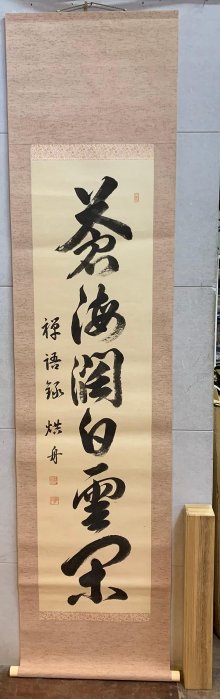 蒼海濶白雲閑
禅語録 焃舟